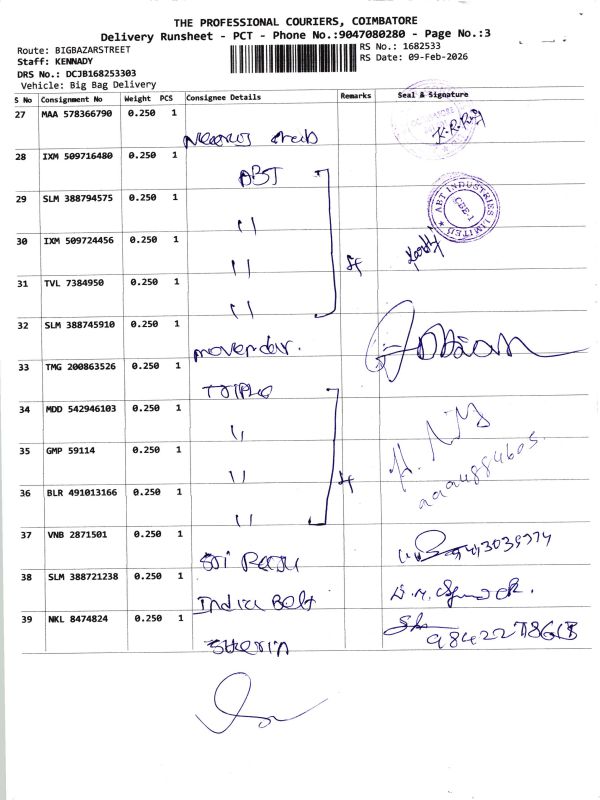 THE PROFESSIONAL COURIERS, COIMBATORE
Delivery Runsheet - PCT - Phone No.:9047080280 - Page No.:3
Route: BIGBAZARSTREET
Staff: KENNADY
DRS No.: DCJB168253303
Vehicle: Big Bag Delivery
RS No.: 1682533
RS Date: 09-Feb-2026
S No Consignment No Weight PCS Consignee Details Remarks Seal & Signature
27 MAA 578366790 0.250 1
K.R.
28 IXM 509716480 0.250 1
ABT
29 SLM 388794575 0.250 1
"
ABT INDUSTRIES LIMITED
CBE-1
30 IXM 509724456 0.250 1
"
31 TVL 7384950 0.250 1
"
32 SLM 388745910 0.250 1
movendur.
33 TMG 200863526 0.250 1
34 MDD 542946103 0.250 1
"
35 GMP 59114 0.250 1
"
36 BLR 491013166 0.250 1
"
37 VNB 2871501 0.250 1
Sri
38 SLM 388721238 0.250 1
India Belt
39 NKL 8474824 0.250 1
Sherin